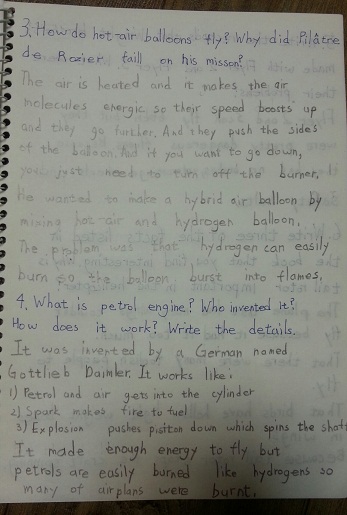 3. How do hot-air balloons fly? Why did Pilâtre
de Rozier faill on his misson?
The air is heated and it makes the air
molecules energic so their speed boosts up
and they go further. And they push the sides
of the balloon. And if you want to go down,
you just need to turn off the burner.
He wanted to make a hybrid air balloon by
mixing hot-air and hydrogen balloon.
The problam was that hydrogen can easily
burn so the balloon burst into flames.
4. What is petrol engine? Who invented it?
How does it work? Write the details.
It was invented by a German named
Gottlieb Daimler. It works like.
1) Petrol and air gets into the cylinder
2) Spark makes fire to fuel
3) Explosion pushes pisiton down which spins the shaft
It made enough energy to fly but
petrols are easily burned like hydrogens so
many of airplans were burnt.